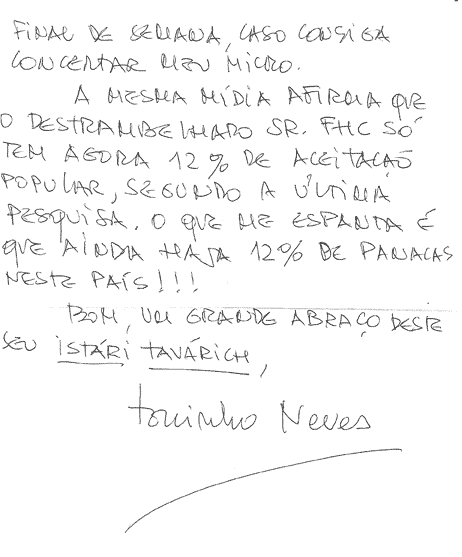 FINAL DE SEMANA, CASO CONSIGA
CONCERTAR MEU MICRO.
A MESMA MÍDIA AFIRMA QUE
O DESTRAMBELHADO SR. FHC SÓ
TEM AGORA 12% DE ACEITAÇÃO
POPULAR, SEGUNDO A ÚLTIMA
PESQUISA. O QUE ME ESPANTA É
QUE AINDA HAJA 12% DE PANACAS
NESTE PAÍS!!!
BOM, UM GRANDE ABRAÇO DESTE
SEU ISTÁRI TAVÁRICH,
Toninho Neves